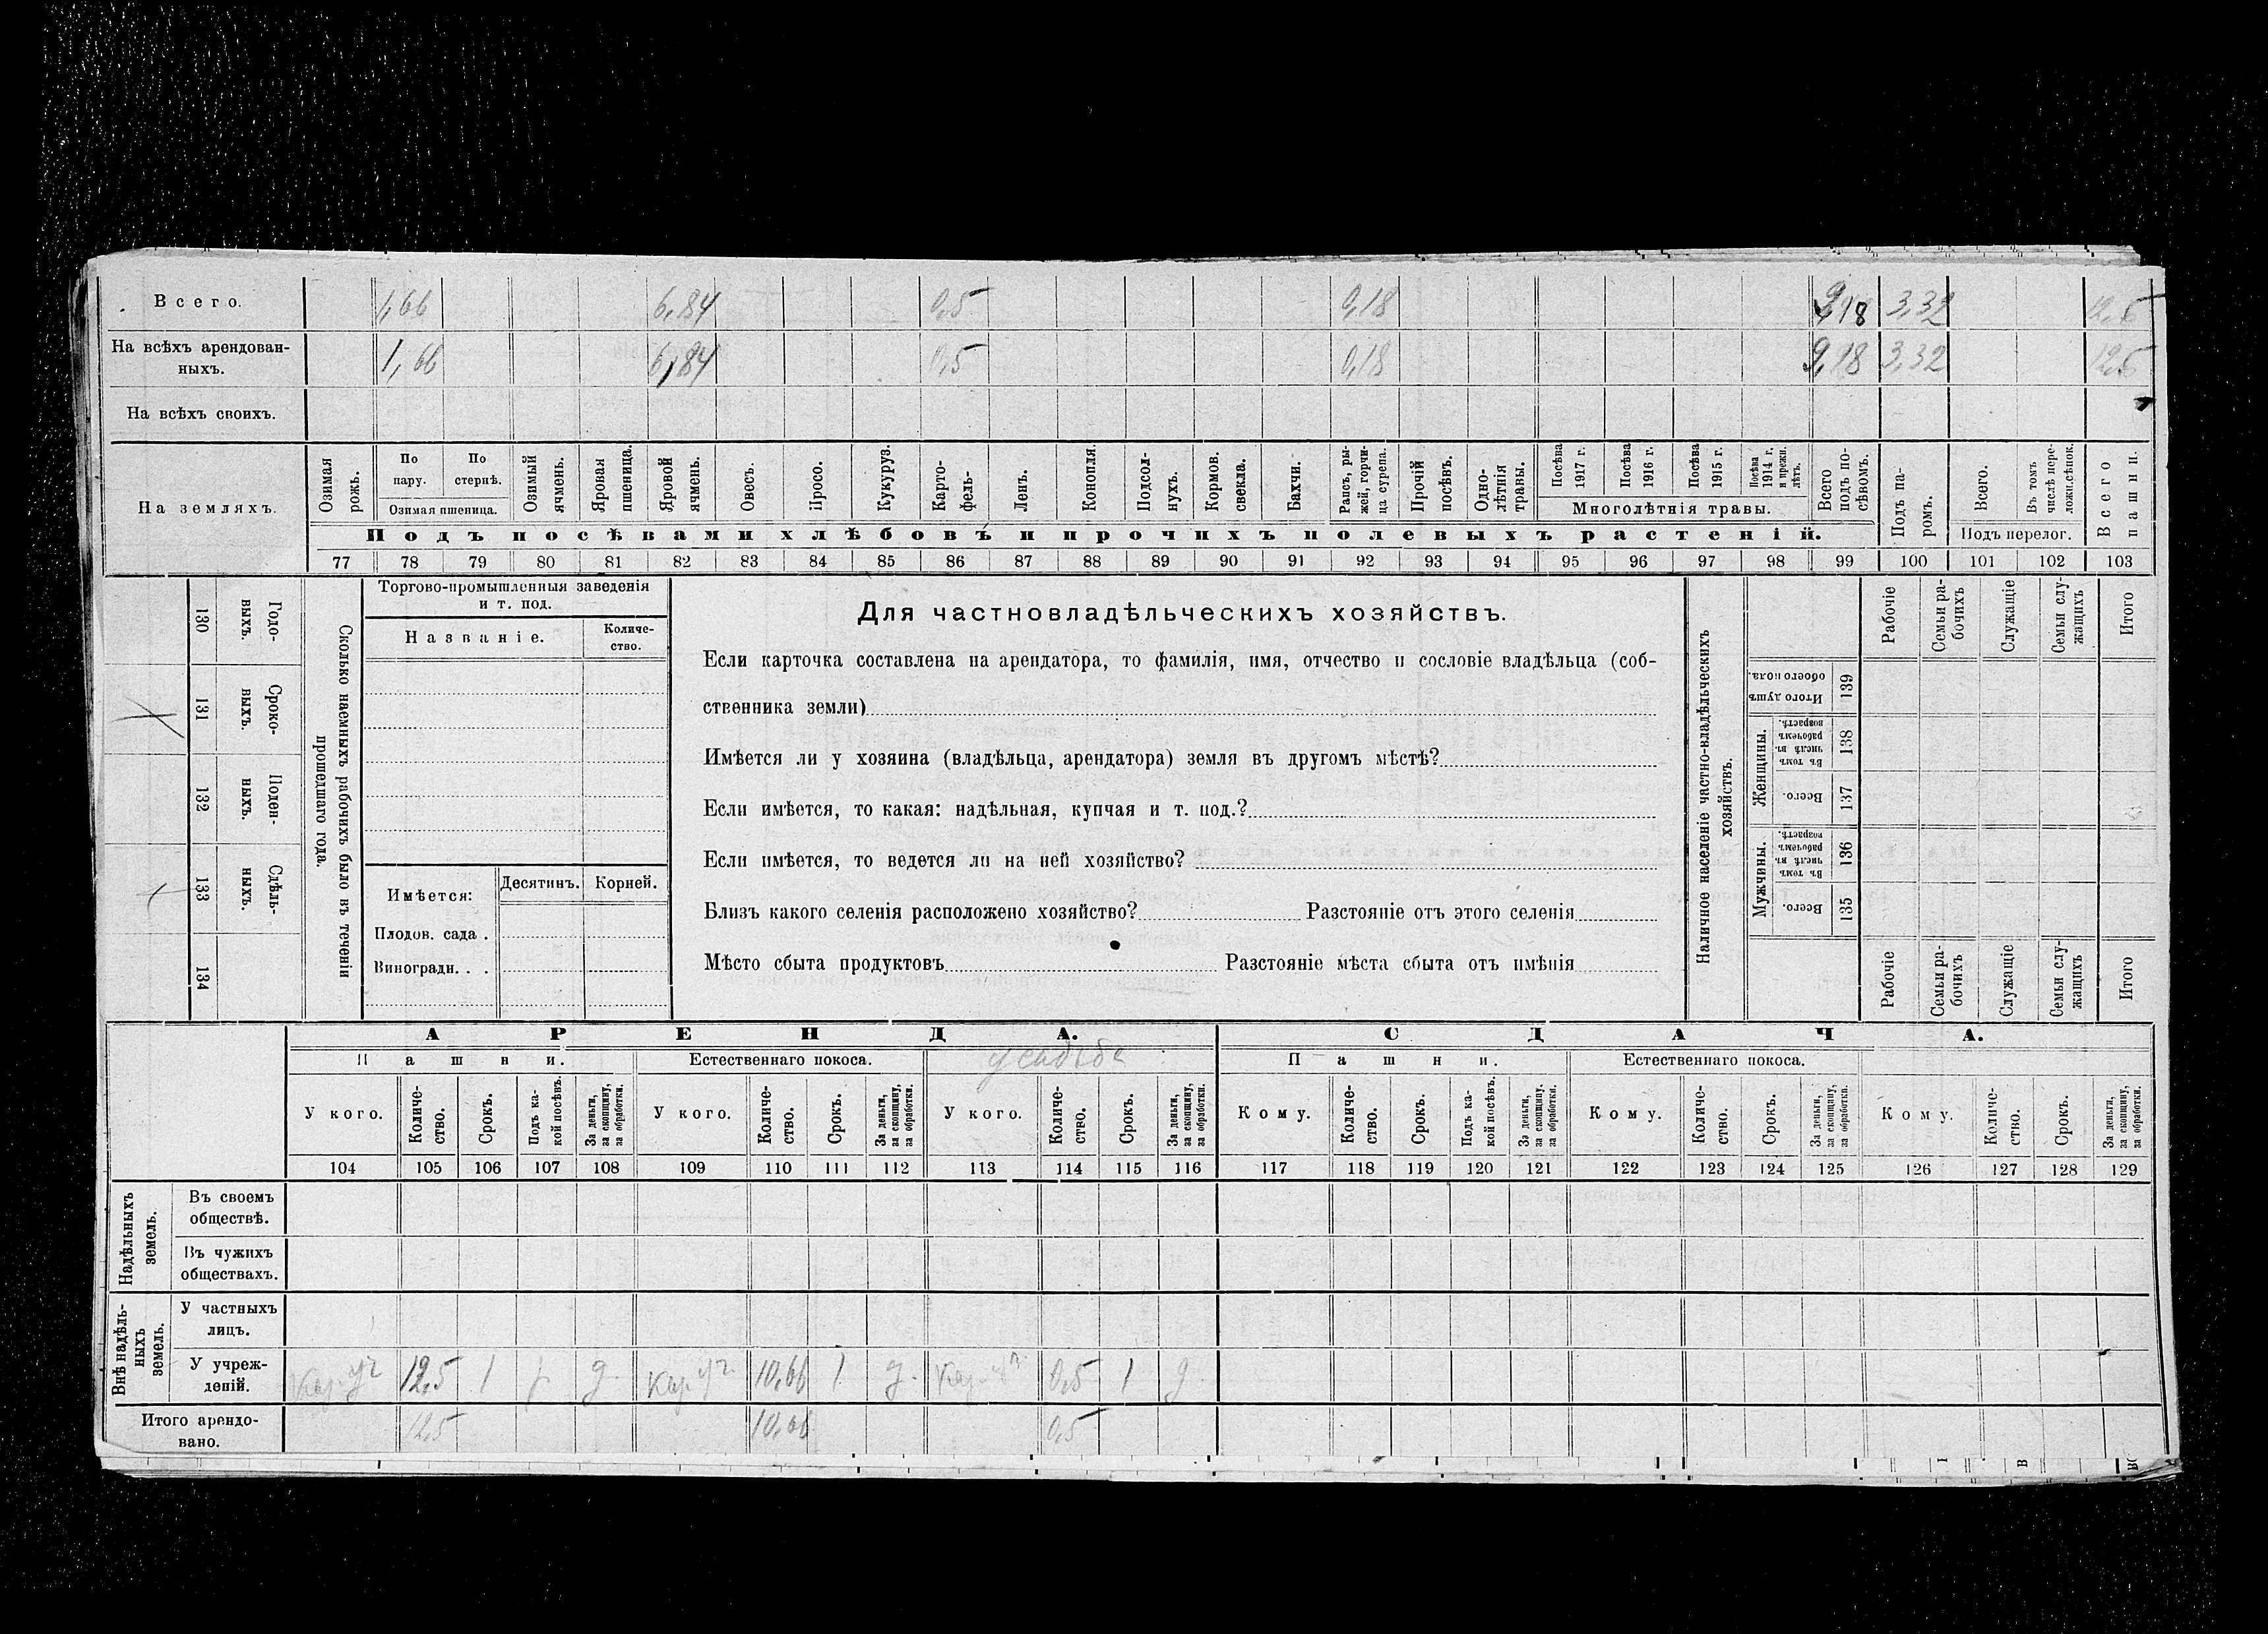 Всего. 1,66 6,84 0,5 0,18 9,18 3,32 12,5
На всѣхъ арендован-
ныхъ. 1,66 6,84 0,5 0,18 9,18 3,32 12,5
На всѣхъ своихъ.
На земляхъ.
Озимая рожь.
По пару.
По стернѣ.
Озимая пшеница.
Озимый ячмень.
Яровая пшеница.
Яровой ячмень.
Овесъ.
Просо.
Кукуруз.
Карто-
фель-
Ленъ.
Конопля.
Подсол-
нухъ.
Кормов.
свекла.
Бахчи.
Рапсъ, ры-
жей, горчи-
ца сурепа.
Прочій
посѣвъ.
Одно-
лѣтнія
травы.
Посѣва
1917 г.
Посѣва
1916 г.
Посѣва
1915 г.
Посѣва
1914 г.
и прежн.
лѣтъ.
Многолѣтнія травы.
Всего
подъ по-
сѣвомъ.
Подъ па-
ромъ.
Всего.
Въ томъ
числѣ пере-
ложн.сѣнок.
Подъ перелог.
Всего
пашни.
Подъ посѣвами хлѣбовъ и прочихъ полевыхъ растеній.
77 78 79 80 81 82 83 84 85 86 87 88 89 90 91 92 93 94 95 96 97 98 99 100 101 102 103
130 Годо-
выхъ.
131 Сроко-
выхъ.
132 Поден-
ныхъ.
133 Сдѣль-
ныхъ.
134
Сколько наемныхъ рабочихъ было въ теченіи
прошедшаго года.
Торгово-промышленныя заведенія
и т. под.
Названіе.
Количе-
ство.
Имѣется: Десятинъ. Корней.
Плодов. сада .
Виноградн. . .
Для частновладѣльческихъ хозяйствъ.
Если карточка составлена на арендатора, то фамилія, имя, отчество и сословіе владѣльца (соб-
ственника земли)
Имѣется ли у хозяина (владѣльца, арендатора) земля въ другомъ мѣстѣ?
Если имѣется, то какая: надѣльная, купчая и т. под.?
Если имѣется, то ведется ли на ней хозяйство?
Близъ какого селенія расположено хозяйство? Разстояніе отъ этого селенія
Мѣсто сбыта продуктовъ Разстояніе мѣста сбыта отъ имѣнія
Наличное населеніе частно-владѣльческихъ
хозяйствъ.
Рабочіе
Семьи ра-
бочихъ
Служащіе
Семьи слу-
жащихъ
Итого
Итого душъ
обоего пола.
139
Женщины.
Въ томъ
числѣ въ
рабочемъ
возрастѣ.
138
Всего.
137
Мужчины.
Въ томъ
числѣ въ
рабочемъ
возрастѣ.
136
Всего.
135
Рабочіе
Семьи ра-
бочихъ
Служащіе
Семьи слу-
жащихъ
Итого
АРЕНДА. СДАЧА.
Пашни. Естественнаго покоса. усадьба Пашни. Естественнаго покоса.
У кого.
Количе-
ство.
Срокъ.
Подъ ка-
кой посѣвъ.
За деньги,
за скопщину,
за обработки.
У кого.
Количе-
ство.
Срокъ.
За деньги,
за скопщину,
за обработки.
У кого.
Количе-
ство.
Срокъ.
За деньги,
за скопщину,
за обработки.
Кому.
Количе-
ство.
Срокъ.
Подъ ка-
кой посѣвъ.
За деньги,
за скопщину,
за обработки.
Кому.
Количе-
ство.
Срокъ.
За деньги,
за скопщину,
за обработки.
Кому.
Количе-
ство.
Срокъ.
За деньги,
за скопщину,
за обработки.
104 105 106 107 108 109 110 111 112 113 114 115 116 117 118 119 120 121 122 123 124 125 126 127 128 129
Надѣльныхъ
земель.
Въ своемъ
обществѣ.
Въ чужихъ
обществахъ.
Внѣ надѣль-
ныхъ
земель.
У частныхъ
лицъ.
У учреж-
деній. 12,5 1 д. 10,66 1 д. 0,5 1 д
Итого арендо-
вано. 12,5 10,66 0,5